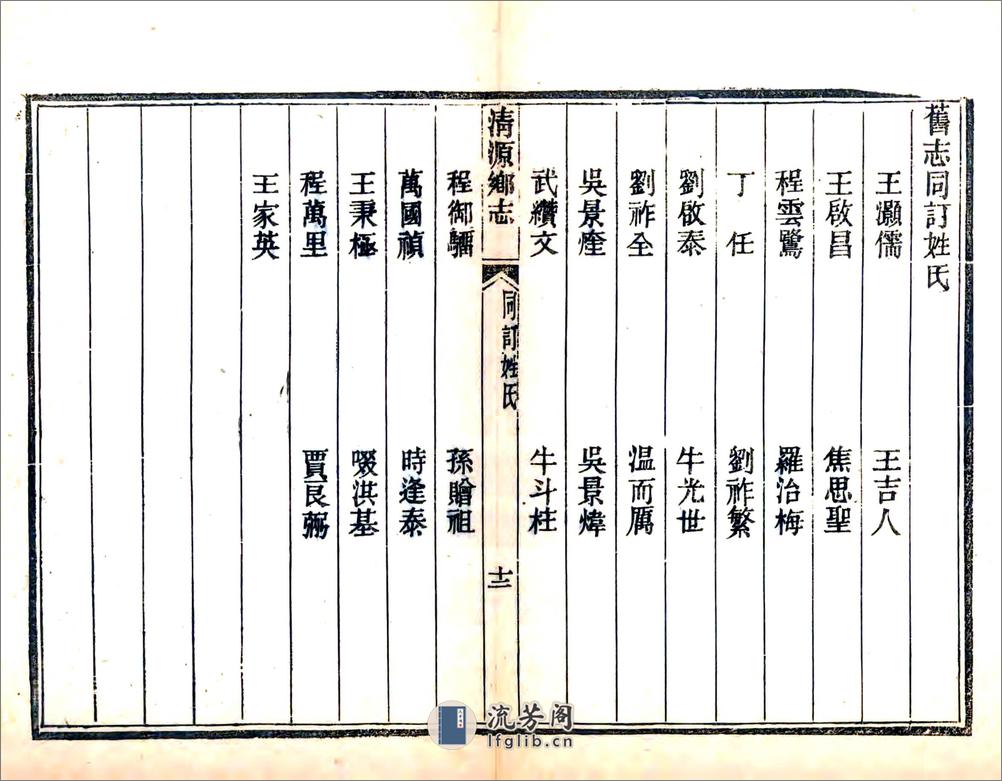 舊志同訂姓氏
王灝儒 王吉人
王啟昌 焦思聖
程雲鷺 羅治梅
丁任 劉祚繁
劉啟泰 牛光世
劉祚全 温而厲
吳景煃 吳景煒
武纘文 牛斗柱
清源鄉志 同訂姓氏 十三
程御驑 孫贈祖
萬國禎 時逢泰
王秉極 啜洪基
程萬里 賈良弼
王家英
流芳阁
lfglib.cn